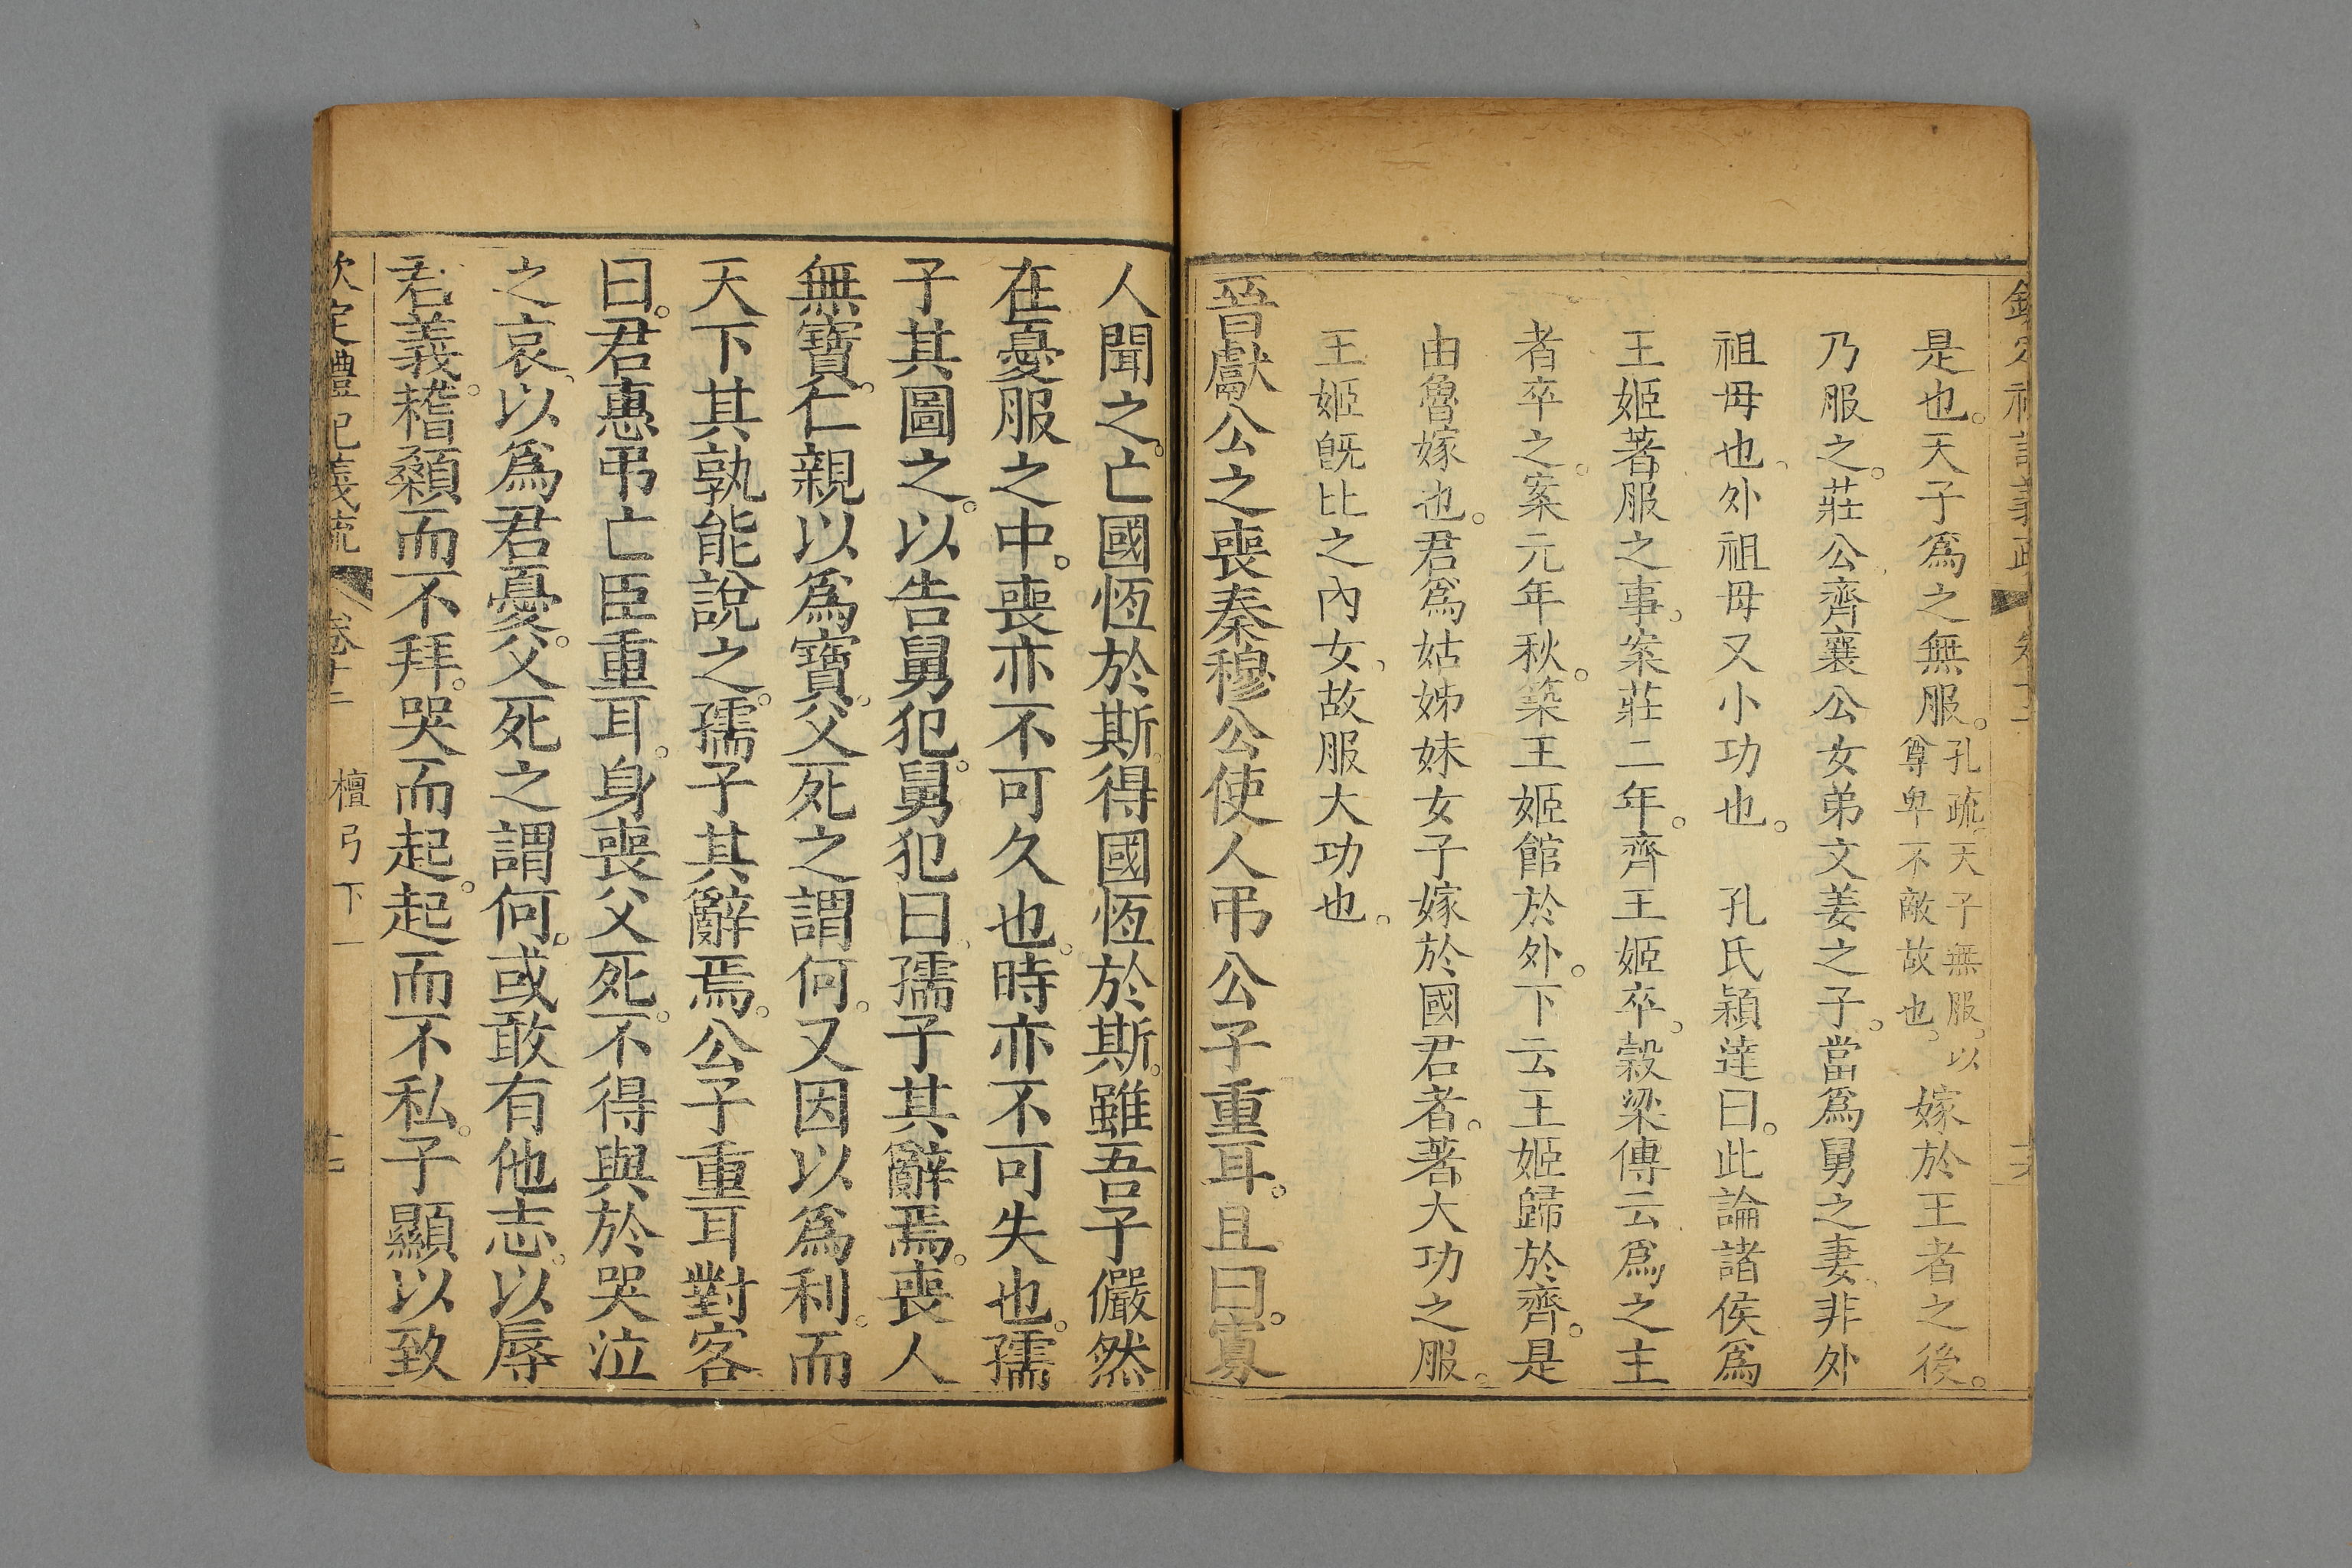 是也。天子爲之無服。孔疏。天子無服。以尊卑不敵故也。嫁於王者之後。
乃服之。莊公齊襄公女弟文姜之子。當爲舅之妻。非外
祖母也。外祖母又小功也。　孔氏穎達曰。此論諸侯爲
王姬著服之事。案莊二年。齊王姬卒。穀梁傳云爲之主
者卒之。案元年秋。築王姬館於外。下云王姬歸於齊。是
由魯嫁也。君爲姑姊妹女子嫁於國君者。著大功之服。
王姬旣比之內女。故服大功也。
晉獻公之喪秦穆公使人弔公子重耳。且曰。寡
人聞之。亡國恆於斯。得國恆於斯。雖吾子儼然
在憂服之中。喪亦不可久也。時亦不可失也。孺
子其圖之。以告舅犯。舅犯曰。孺子其辭焉。喪人
無寶。仁親以爲寶。父死之謂何。又因以爲利。而
天下其孰能說之。孺子其辭焉。公子重耳對客
曰。君惠弔亡臣重耳。身喪父死。不得與於哭泣
之哀。以爲君憂。父死之謂何。或敢有他志。以辱
君義。稽顙而不拜。哭而起。起而不私。子顯以致
欽定禮記義疏　卷十二　檀弓下一